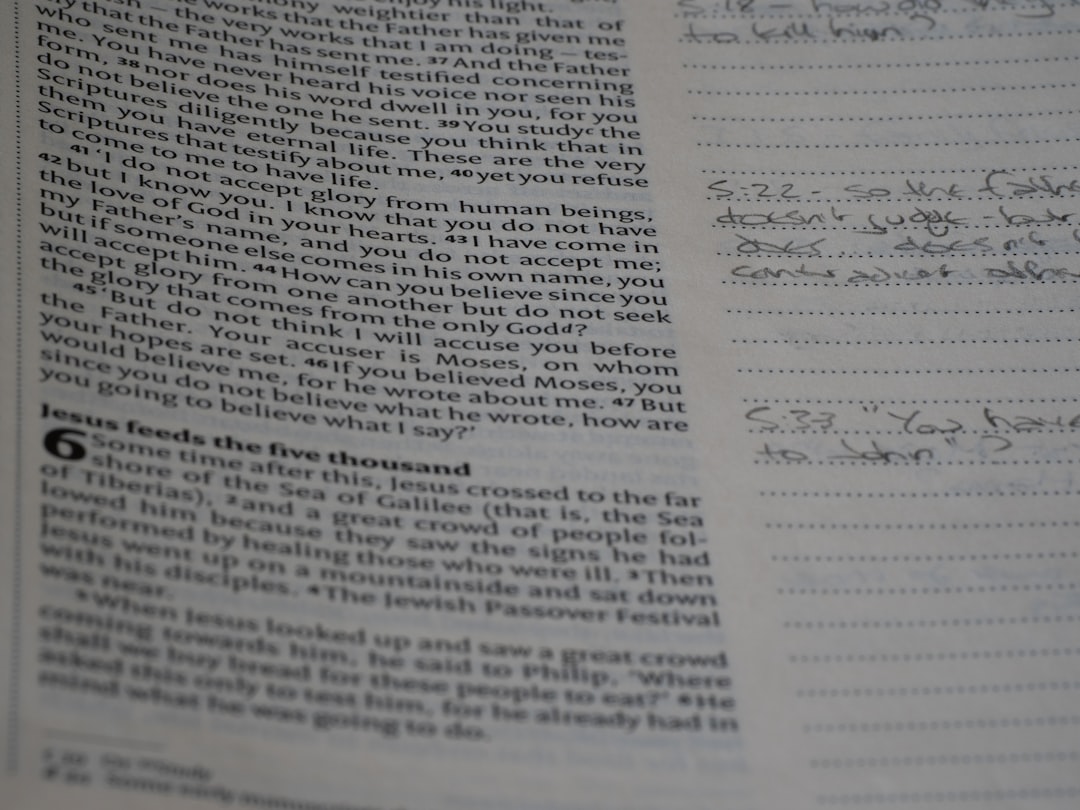 his light.
weightier than that of
works that the Father has given me
the very works that I am doing – tes-
that the Father has sent me. 37 And the Father
who sent me has himself testified concerning
me. You have never heard his voice nor seen his
form, 38 nor does his word dwell in you, for you
do not believe the one he sent. 39 You study c the
Scriptures diligently because you think that in
them you have eternal life. These are the very
Scriptures that testify about me, 40 yet you refuse
to come to me to have life.
41 ‘I do not accept glory from human beings,
42 but I know you. I know that you do not have
the love of God in your hearts. 43 I have come in
my Father’s name, and you do not accept me;
but if someone else comes in his own name, you
will accept him. 44 How can you believe since you
accept glory from one another but do not seek
the glory that comes from the only God d?
45 ‘But do not think I will accuse you before
the Father. Your accuser is Moses, on whom
your hopes are set. 46 If you believed Moses, you
would believe me, for he wrote about me. 47 But
since you do not believe what he wrote, how are
you going to believe what I say?’
Jesus feeds the five thousand
6 Some time after this, Jesus crossed to the far
shore of the Sea of Galilee (that is, the Sea
of Tiberias), 2 and a great crowd of people fol-
lowed him because they saw the signs he had
performed by healing those who were ill. 3 Then
Jesus went up on a mountainside and sat down
with his disciples. 4 The Jewish Passover Festival
was near.
5 When Jesus looked up and saw a great crowd
coming towards him, he said to Philip, ‘Where
shall we buy bread for these people to eat?’ 6 He
asked this only to test him, for he already had in
mind what he was going to do.
5:18 – how did
to kill him?
5:22 – so the
doesn't judge – but
does ... doesn't
5:33 "You have
to John"?